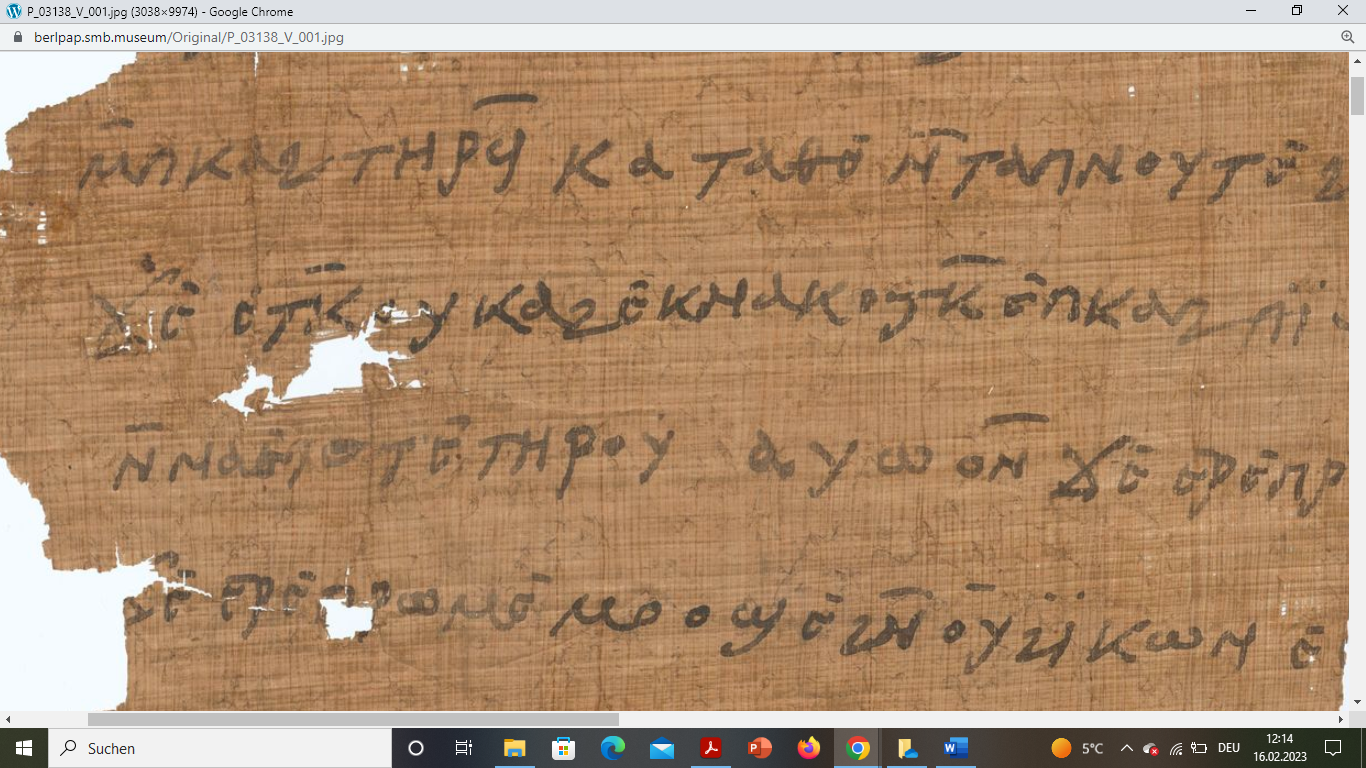 P_03138_V_001.jpg (3038×9974) - Google Chrome
berlpap.smb.museum/Original/P_03138_V_001.jpg
ⲙ̄ⲡⲕⲁϩ ⲧⲏⲣϥ̄ ⲕⲁⲧⲁⲑⲉ ⲛ̄ⲧⲁⲡⲛⲟⲩⲧⲉ
ϫⲉ ⲛ̄ⲧⲕ̄ⲟⲩⲕⲁϩ ⲉⲕⲛⲁⲕⲟⲩⲕ̄ ⲉⲡⲕⲁϩ
ⲛ̄ⲛⲁⲉⲓⲟⲧⲉ ⲧⲏⲣⲟⲩ ⲁⲩⲱ ⲟⲛ̄ ϫⲉ ⲉⲣⲉⲡⲣ
ϫⲉ ⲉⲣⲉⲡⲣⲱⲙⲉ ⲙⲟⲟϣⲉ ϩⲛ̄ ⲟⲩϩⲓ̈ⲕⲱⲛ ⲉ
Suchen
5°C
DEU
12:14
16.02.2023